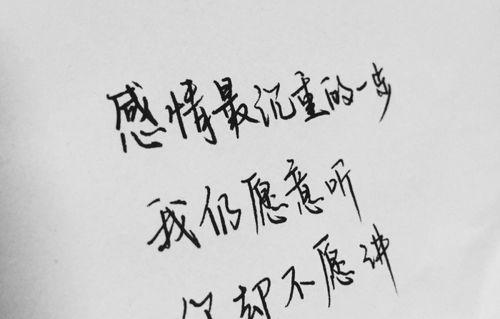 感情最沉重的一步
我仍愿意听
却不愿讲